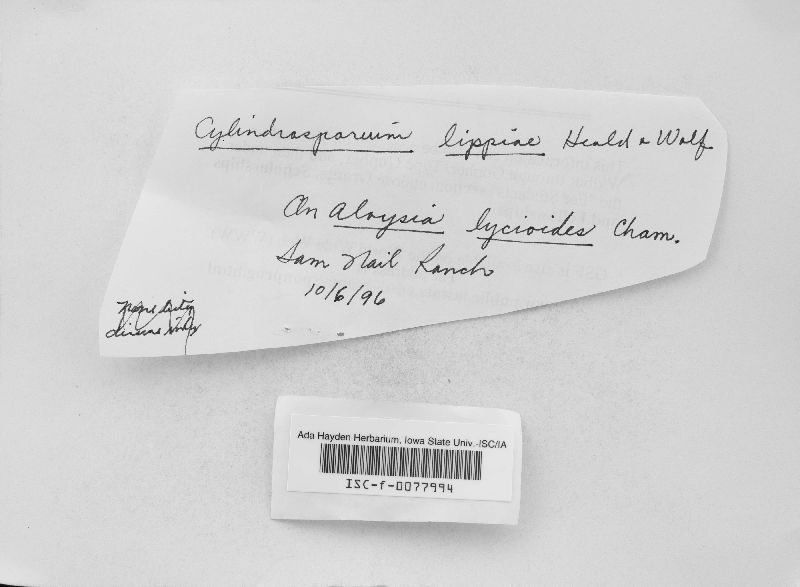 Cylindrosporium lippiae Heald & Wolf
On Aloysia lycioides Cham.
Sam Nail Ranch
10/6/96
Ada Hayden Herbarium, Iowa State Univ.-ISC/IA
ISC-f-0077994